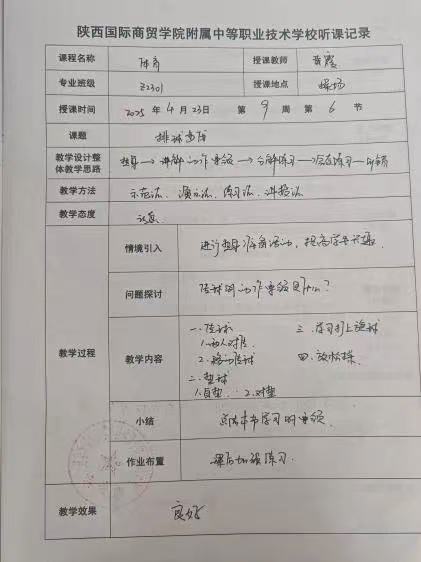 陕西国际商贸学院附属中等职业技术学校听课记录
课程名称 体育 授课教师
专业班级 Z2301 授课地点 操场
授课时间 2025 年 4 月 23日 第 9 周 第 6 节
课题 排球
教学设计整体教学思路 热身→讲解动作要领→分解练习→
教学方法 示范法、演示法、练习法、讲授法
教学态度 认真
教学过程
情境引入 进行热身准备活动,提高学生兴趣.
问题探讨 传球的动作要领是什么?
教学内容
一.传球 三.学习打上旋球
1.两人对传 四.放松操
2.移动传球
二.垫球
1.自垫. 2.对垫
小结 总结本节学习的要领.
作业布置 课后加强练习.
教学效果 良好